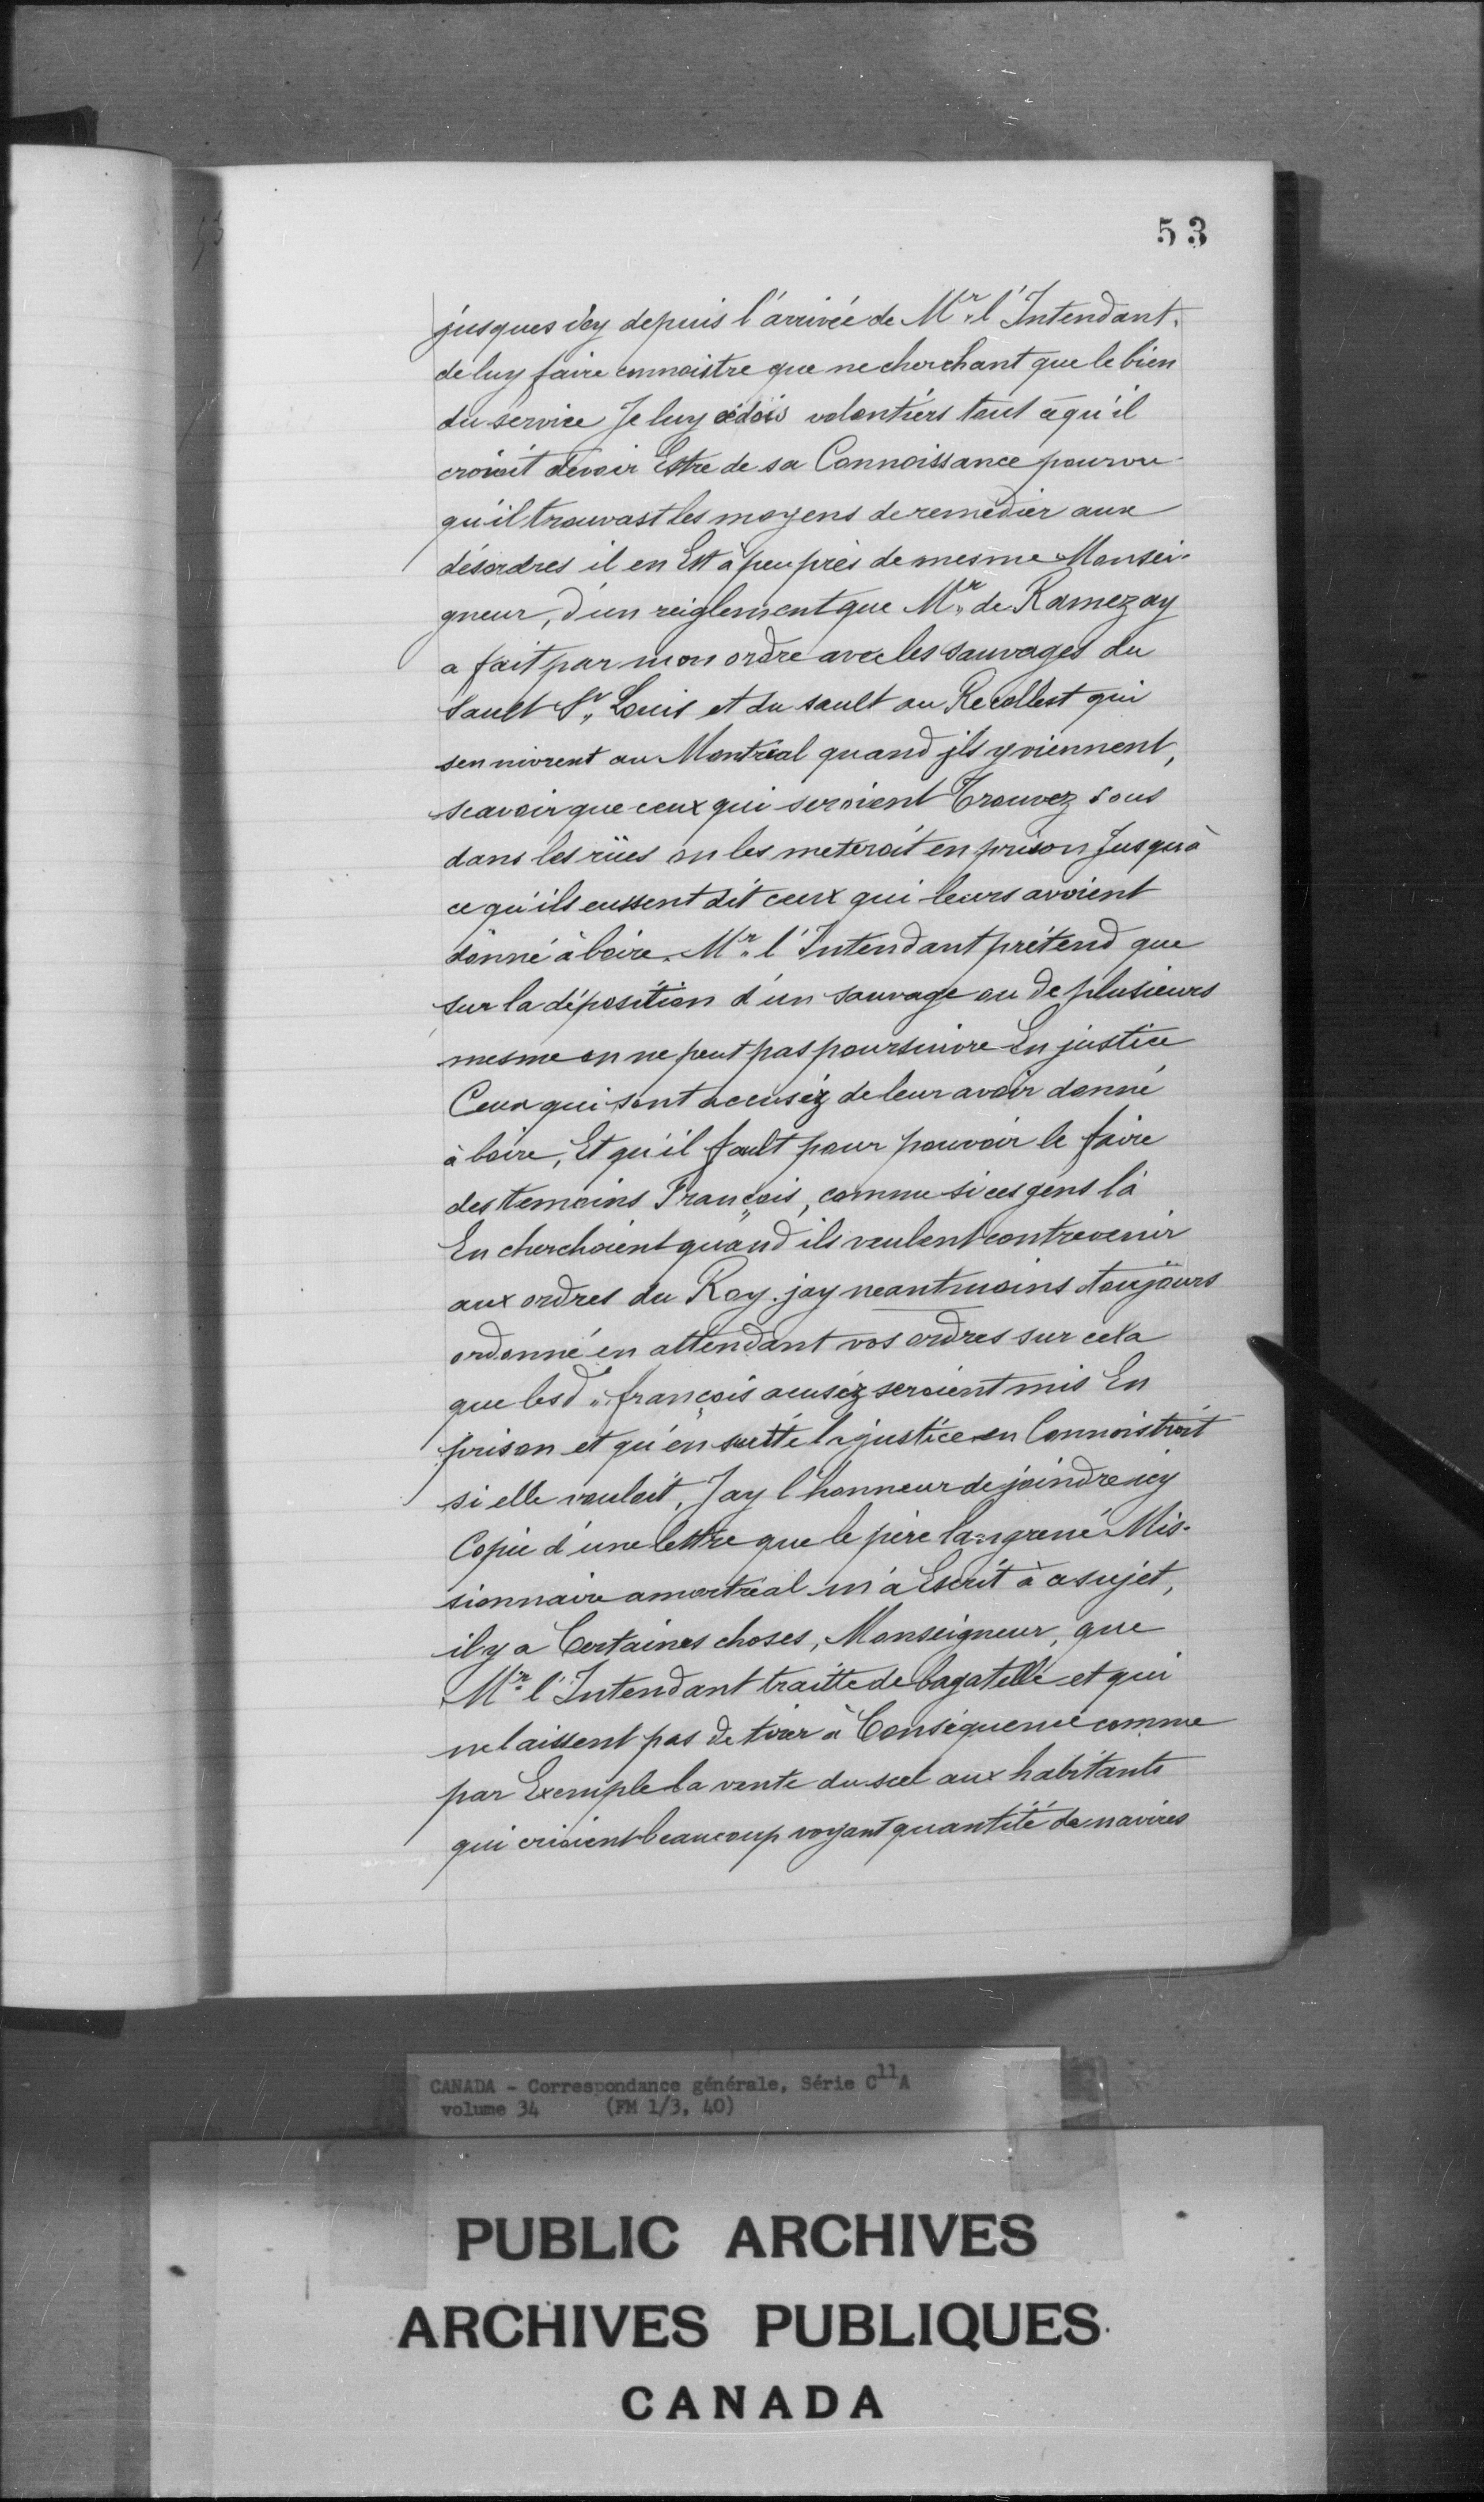 53
jusques icy depuis l'arrivée de Mr. l'Intendant.
de luy faire connoistre que ne cherchant que le bien
du service Je luy cédois volontiers tout cequ'il
croioit devoir Estre de sa Connoissance pourvu
qu'il trouvast les moyens de remedier aux
désordres il en Est à peu près de mesme Monsei-
gneur, d'un reiglement que Mr. de Ramezay
a fait par mon ordre avec les sauvages du
Sault St. Louis et du sault au Recollest qui
sennivrent au Montreal quand jls y viennent,
scavoir que ceux qui seroient Trouvez sous
dans les rües on les meteroit en prison Jusqu'à
ce qu'ils eussent dit ceux qui leurs avoient
donné à boire. Mr. l'Intendant prétend que
sur la déposition d'un sauvage ou de plusieurs
mesme on ne peut pas poursuivre En justice
Ceux qui sont accusez de leur avoir donné
à boire, Et qu'il fault pour pouvoir le faire
des temoins François, comme si ces gens là
En cherchoient quand ils veulent contrevenir
aux ordres du Roy. jay neantmoins toujours
ordonné en attendant vos ordres sur cela
que lesd. françois acusez seroient mis En
prison et qu'en suitte la justice en Connoistroit
si elle vouloit, Jay l'honneur de joindre icy
Copie d'une lettre que le père la-grené Mis-
sionnaire amontreal m'a Escrit à ce sujet,
il y a Certaines choses, Monseigneur, que
Mr. l'Intendant traitte de bagatelle et qui
ne laissent pas de tirer à Conséquence comme
par Exemple la vente du sel aux habitants
qui crioient beaucoup voyant quantité de navires
CANADA - Correspondance générale, Série C11A
volume 34 (FM 1/3, 40)
PUBLIC ARCHIVES
ARCHIVES PUBLIQUES
CANADA